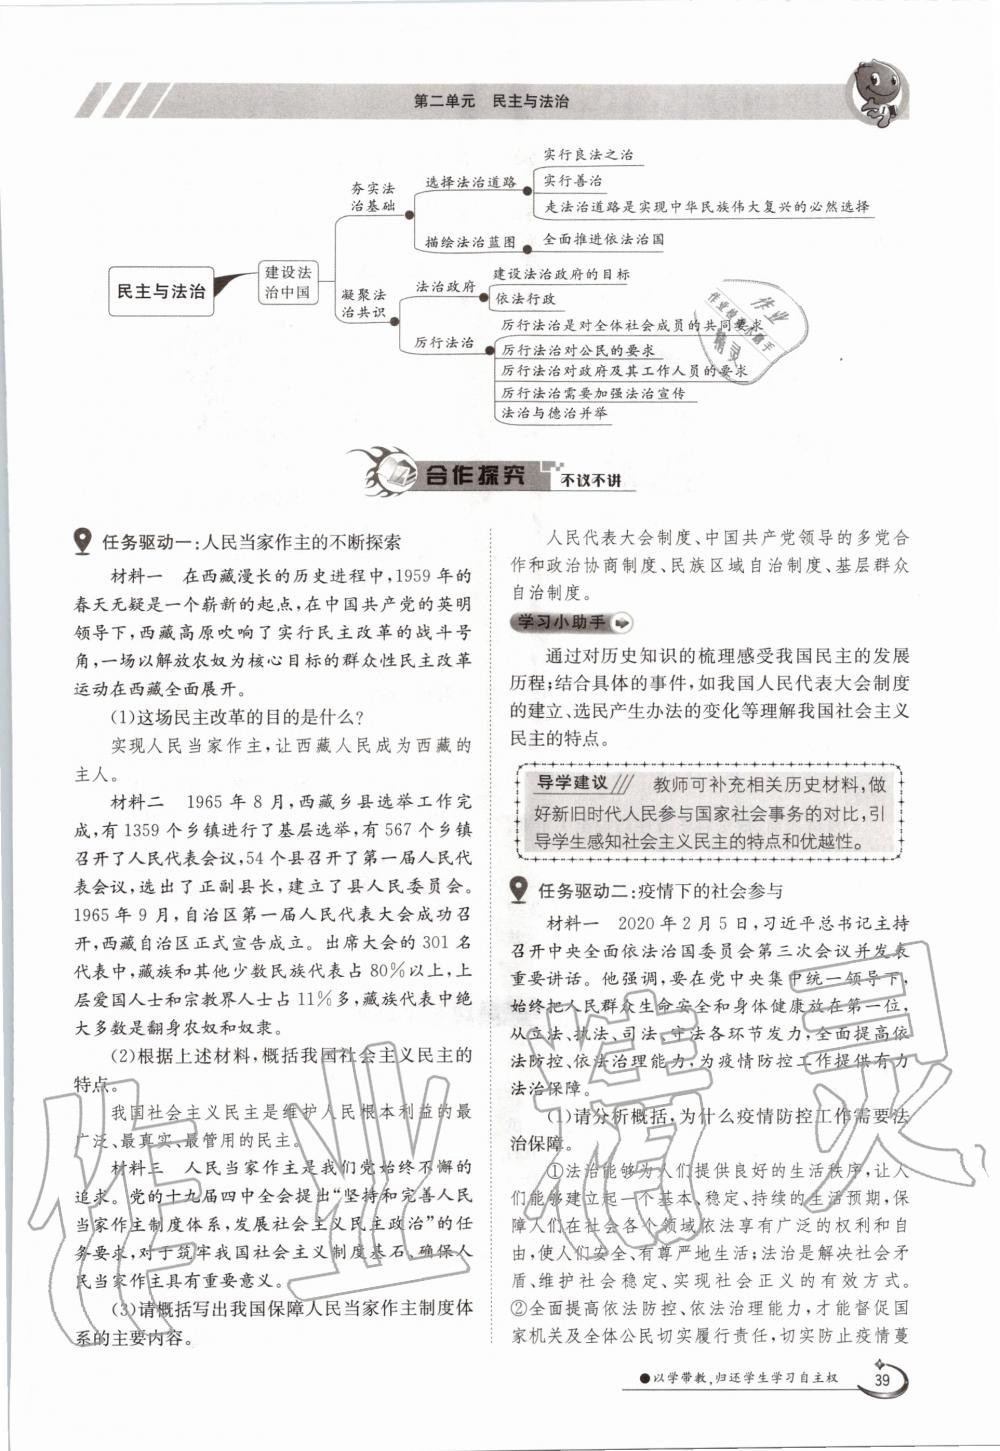 第二单元　民主与法治
民主与法治
建设法
治中国
夯实法
治基础
选择法治道路
实行良法之治
实行善治
走法治道路是实现中华民族伟大复兴的必然选择
描绘法治蓝图
全面推进依法治国
凝聚法
治共识
法治政府
建设法治政府的目标
依法行政
厉行法治
厉行法治是对全体社会成员的共同要求
厉行法治对公民的要求
厉行法治对政府及其工作人员的要求
厉行法治需要加强法治宣传
法治与德治并举
作业
作业检查小助手
精灵
合作探究　不议不讲
任务驱动一:人民当家作主的不断探索
材料一　在西藏漫长的历史进程中,1959 年的
春天无疑是一个崭新的起点,在中国共产党的英明
领导下,西藏高原吹响了实行民主改革的战斗号
角,一场以解放农奴为核心目标的群众性民主改革
运动在西藏全面展开。
(1)这场民主改革的目的是什么?
实现人民当家作主,让西藏人民成为西藏的
主人。
材料二　1965 年 8 月,西藏乡县选举工作完
成,有 1359 个乡镇进行了基层选举,有 567 个乡镇
召开了人民代表会议,54 个县召开了第一届人民代
表会议,选出了正副县长,建立了县人民委员会。
1965 年 9 月,自治区第一届人民代表大会成功召
开,西藏自治区正式宣告成立。出席大会的 301 名
代表中,藏族和其他少数民族代表占 80%以上,上
层爱国人士和宗教界人士占 11%多,藏族代表中绝
大多数是翻身农奴和奴隶。
(2)根据上述材料,概括我国社会主义民主的
特点。
我国社会主义民主是维护人民根本利益的最
广泛、最真实、最管用的民主。
材料三　人民当家作主是我们党始终不懈的
追求。党的十九届四中全会提出“坚持和完善人民
当家作主制度体系,发展社会主义民主政治”的任
务要求,对于筑牢我国社会主义制度基石、确保人
民当家作主具有重要意义。
(3)请概括写出我国保障人民当家作主制度体
系的主要内容。
人民代表大会制度、中国共产党领导的多党合
作和政治协商制度、民族区域自治制度、基层群众
自治制度。
学习小助手
通过对历史知识的梳理感受我国民主的发展
历程;结合具体的事件,如我国人民代表大会制度
的建立、选民产生办法的变化等理解我国社会主义
民主的特点。
导学建议　教师可补充相关历史材料,做
好新旧时代人民参与国家社会事务的对比,引
导学生感知社会主义民主的特点和优越性。
任务驱动二:疫情下的社会参与
材料一　2020 年 2 月 5 日,习近平总书记主持
召开中央全面依法治国委员会第三次会议并发表
重要讲话。他强调,要在党中央集中统一领导下,
始终把人民群众生命安全和身体健康放在第一位,
从立法、执法、司法、守法各环节发力,全面提高依
法防控、依法治理能力,为疫情防控工作提供有力
法治保障。
(1)请分析概括,为什么疫情防控工作需要法
治保障。
①法治能够为人们提供良好的生活秩序,让人
们能够建立起一个基本、稳定、持续的生活预期,保
障人们在社会各个领域依法享有广泛的权利和自
由,使人们安全、有尊严地生活;法治是解决社会矛
盾、维护社会稳定、实现社会正义的有效方式。
②全面提高依法防控、依法治理能力,才能督促国
家机关及全体公民切实履行责任,切实防止疫情蔓
作业精灵
●以学带教,归还学生学习自主权
39